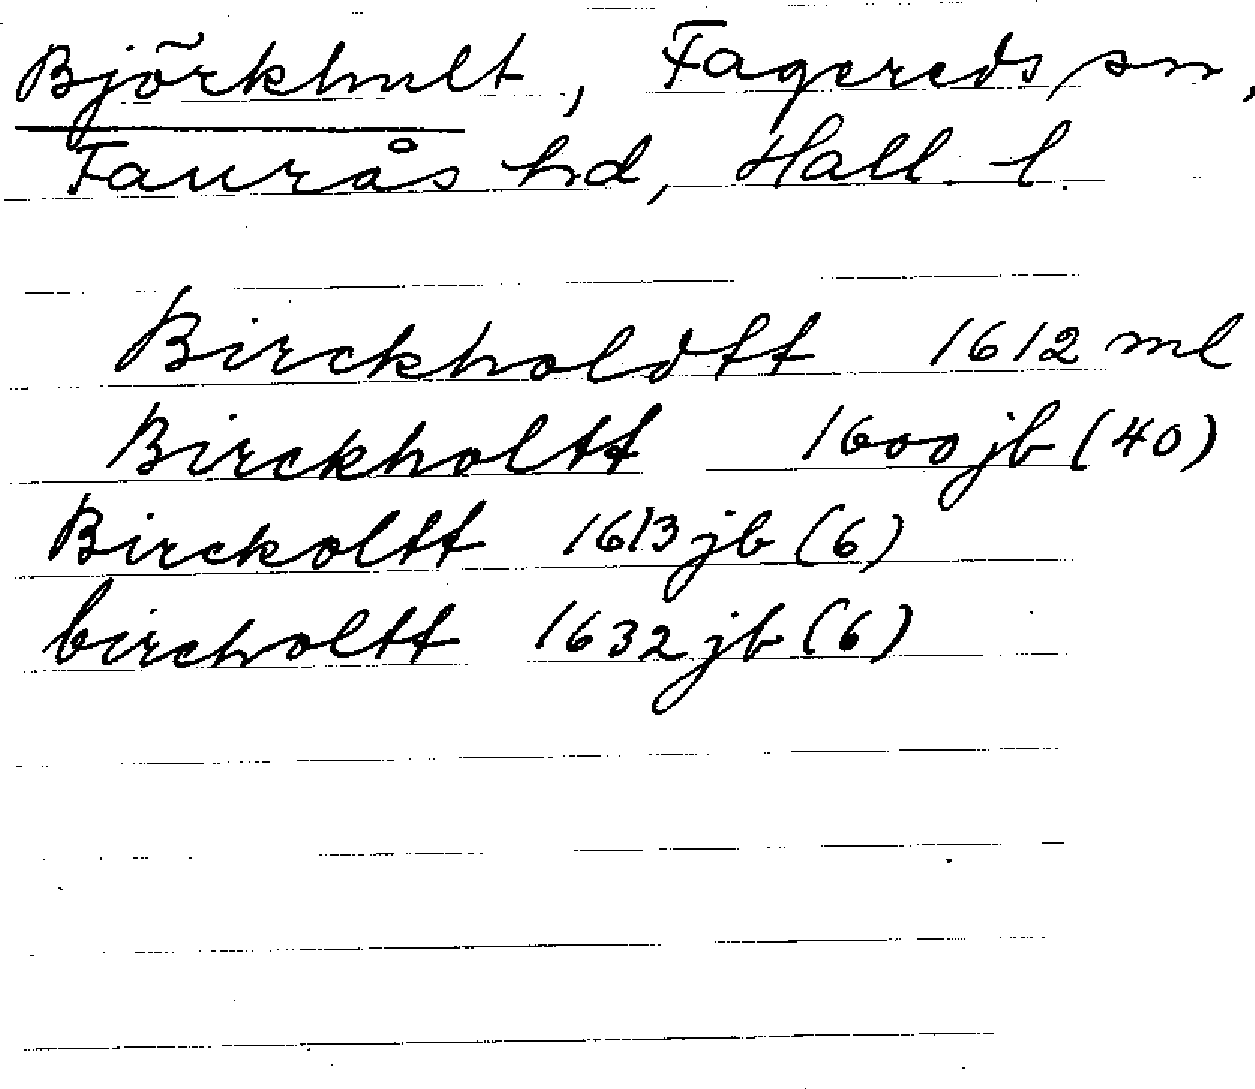 Björkhult, Fagereds sn,
Faurås hd, Hall. l.
Birckholdtt 1612 ml
Birckholtt 1600 jb (40)
Birckoltt 1613 jb (6)
bircholtt 1632 jb (6)